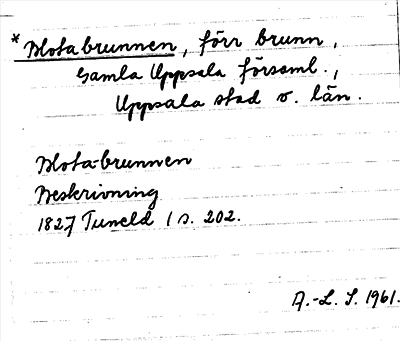 * Blotabrunnen, förr brunn,
Gamla Uppsala församl.,
Uppsala stad o. län.
Blota-brunnen
Beskrivning
1827 Tuneld 1 s. 202.
A.-L. S. 1961.